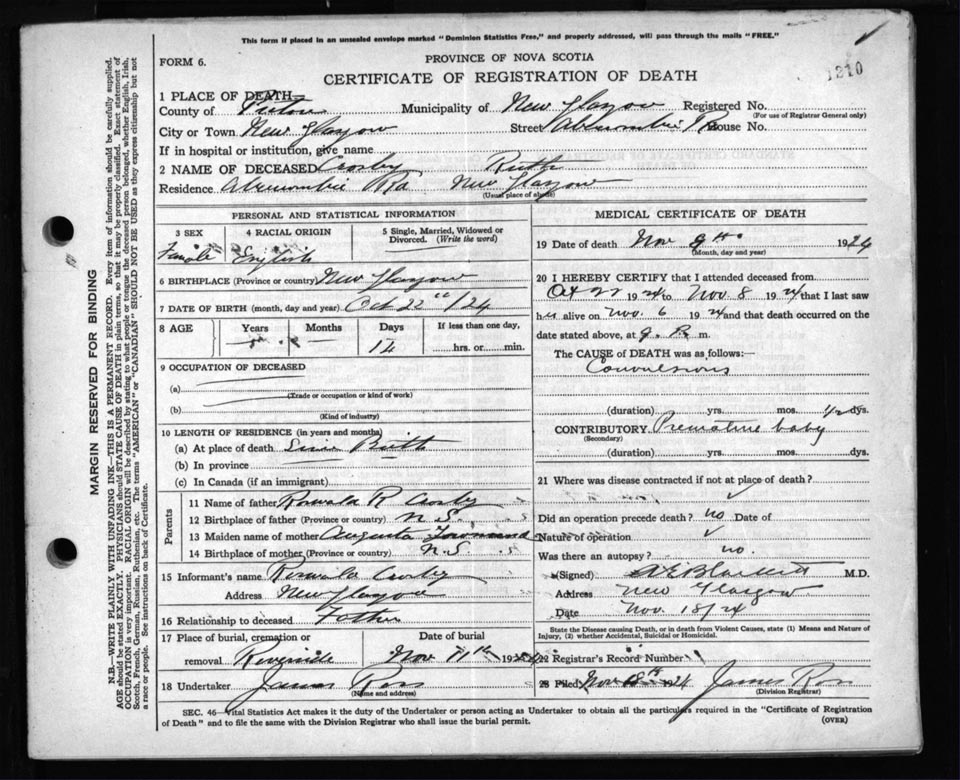 This form if placed in an unsealed envelope marked "Dominion Statistics Free," and properly addressed, will pass through the mails "FREE."
1210
FORM 6.
PROVINCE OF NOVA SCOTIA
CERTIFICATE OF REGISTRATION OF DEATH
1 PLACE OF DEATH—
County of Pictou Municipality of New Glasgow Registered No.
(For use of Registrar General only)
City or Town New Glasgow Street Abercrombie Rd House No.
If in hospital or institution, give name
2 NAME OF DECEASED Crosby Ruth
Residence Abercrombie Rd New Glasgow
(Usual place of abode)
PERSONAL AND STATISTICAL INFORMATION
3 SEX 4 RACIAL ORIGIN 5 Single, Married, Widowed or Divorced. (Write the word)
Female English
6 BIRTHPLACE (Province or country) New Glasgow
7 DATE OF BIRTH (month, day and year) Oct 22" /24
8 AGE Years Months Days If less than one day,
14 hrs. or min.
9 OCCUPATION OF DECEASED
(a)
(Trade or occupation or kind of work)
(b)
(Kind of industry)
10 LENGTH OF RESIDENCE (in years and months)
(a) At place of death Since Birth
(b) In province
(c) In Canada (if an immigrant)
Parents
11 Name of father Ronald R Crosby
12 Birthplace of father (Province or country) N.S.
13 Maiden name of mother Augusta
14 Birthplace of mother (Province or country) N.S.
15 Informant's name Ronald Crosby
Address New Glasgow
16 Relationship to deceased Father
17 Place of burial, cremation or removal Date of burial
Riverside Nov 11th 1924
18 Undertaker James Ross
(Name and address)
MEDICAL CERTIFICATE OF DEATH
19 Date of death Nov 9th 1924
(Month, day and year)
20 I HEREBY CERTIFY that I attended deceased from
Oct 22 1924 to Nov. 8 1924 that I last saw
her alive on Nov. 6 1924 and that death occurred on the
date stated above, at m.
The CAUSE of DEATH was as follows:—
Convulsions
(duration) yrs. mos. 1/2 dys.
CONTRIBUTORY Premature baby
(Secondary)
(duration) yrs. mos. dys.
21 Where was disease contracted if not at place of death?
Did an operation precede death? no Date of
Nature of operation
Was there an autopsy? no.
(Signed) M.D.
Address New Glasgow
Date Nov. 18/24
State the Disease causing Death, or in death from Violent Causes, state (1) Means and Nature of
Injury, (2) whether Accidental, Suicidal or Homicidal.
22 Registrar's Record Number
23 Filed Nov 18th 1924 James Ross
(Division Registrar)
SEC. 46—Vital Statistics Act makes it the duty of the Undertaker or person acting as Undertaker to obtain all the particulars required in the "Certificate of Registration
of Death" and to file the same with the Division Registrar who shall issue the burial permit.
(OVER)
MARGIN RESERVED FOR BINDING
N.B.—WRITE PLAINLY WITH UNFADING INK—THIS IS A PERMANENT RECORD. Every item of information should be carefully supplied.
AGE should be stated EXACTLY. PHYSICIANS should STATE CAUSE OF DEATH in plain terms, so that it may be properly classified. Exact statement of
OCCUPATION is very important. RACIAL ORIGIN will be described by stating to what people or tongue the deceased person belonged, whether English, Irish,
Scotch, French, German, Russian, Ruthenian, etc. The terms "AMERICAN" or "CANADIAN" SHOULD NOT BE USED as they express citizenship but not
a race or people. See instructions on back of Certificate.